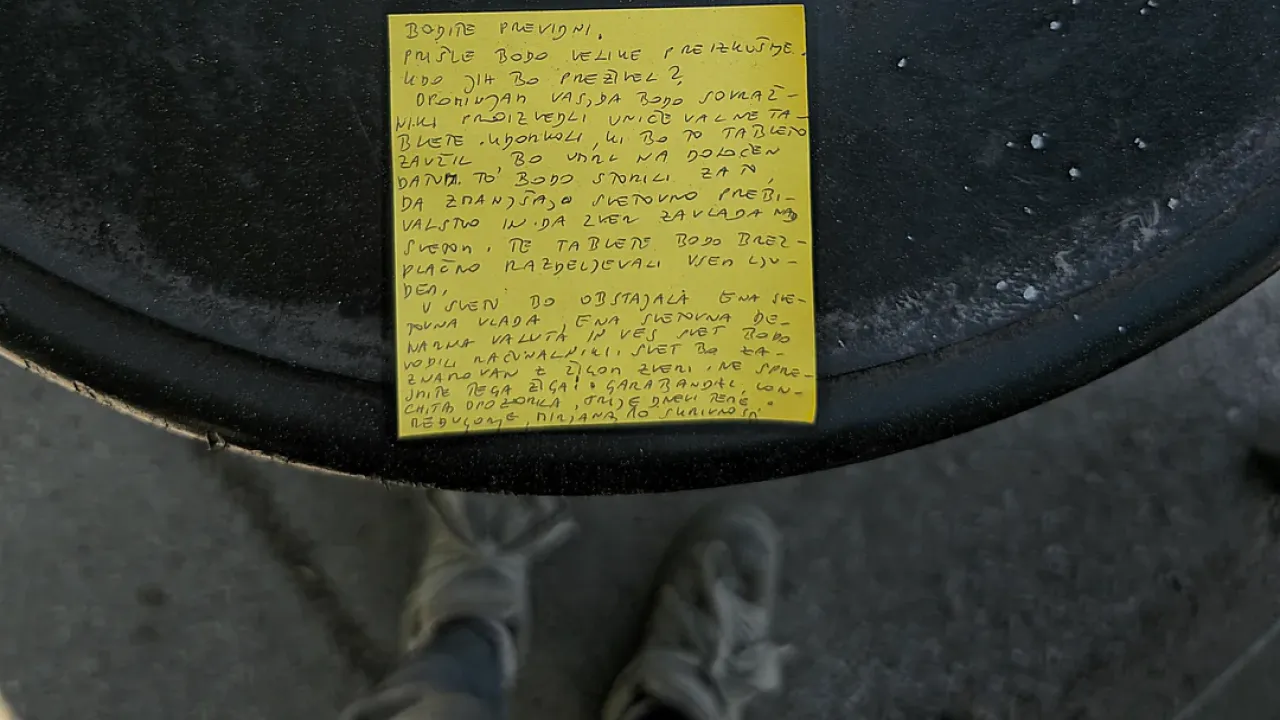 BODITE PREVIDNI.
PRIŠLE BODO VELIKE PREIZKUŠNJE.
KDO JIH BO PREŽIVEL?
OPOMINJAM VAS, DA BODO SOVRAŽ-
NIKI PROIZVEDLI UNIČEVALNE TA-
BLETE. KDORKOLI, KI BO TO TABLETO
ZAUŽIL BO UMRL NA DOLOČEN
DATUM. TO BODO STORILI ZA TO,
DA ZMANJŠAJO SVETOVNO PREBI-
VALSTVO IN DA ZVER ZAVLADA NAD
SVETOM. TE TABLETE BODO BREZ-
PLAČNO RAZDELJEVALI VSEM LJU-
DEM.
V SVETU BO OBSTAJALA ENA SVE-
TOVNA VLADA, ENA SVETOVNA DE-
NARNA VALUTA IN VES SVET BODO
VODILI RAČUNALNIKI. SVET BO ZA-
ZNAMOVAN Z ŽIGOM ZVERI. NE SPRE-
JMITE TEGA ŽIGA! GARABANDAL, CON-
CHITA OPOZORILA, TRIJE DNEVI TEME.
MEDUGORJE, MIRJANA 10 SKRIVNOSTI